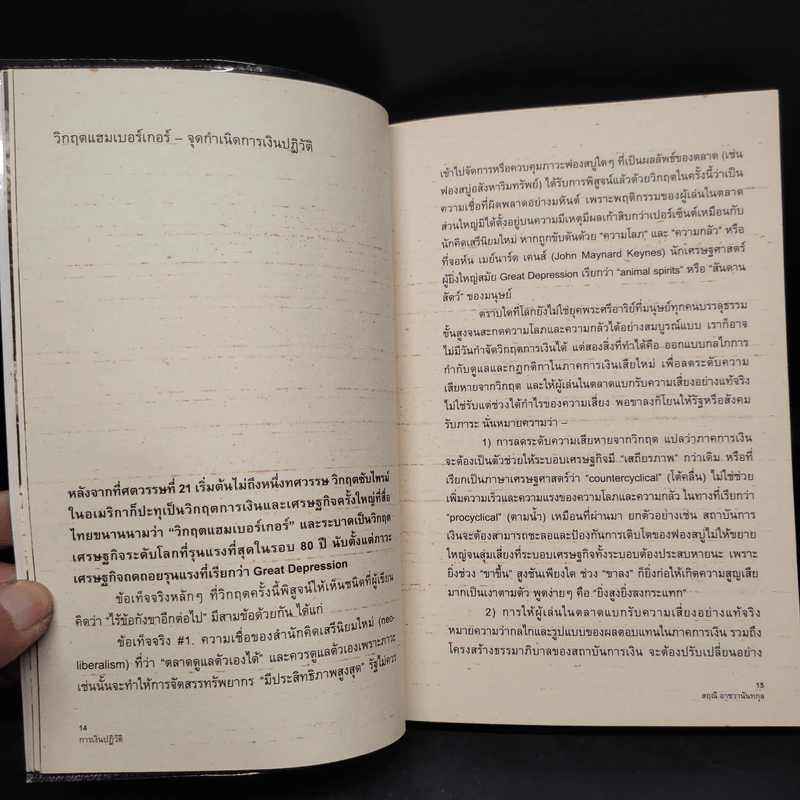 วิกฤตแฮมเบอร์เกอร์ – จุดกำเนิดการเงินปฏิวัติ
หลังจากที่ศตวรรษที่ 21 เริ่มต้นไม่ถึงหนึ่งทศวรรษ วิกฤตซับไพรม์
ในอเมริกาก็ปะทุเป็นวิกฤตการเงินและเศรษฐกิจครั้งใหญ่ที่สื่อ
ไทยขนานนามว่า “วิกฤตแฮมเบอร์เกอร์” และระบาดเป็นวิกฤต
เศรษฐกิจระดับโลกที่รุนแรงที่สุดในรอบ 80 ปี นับตั้งแต่ภาวะ
เศรษฐกิจถดถอยรุนแรงที่เรียกว่า Great Depression
ข้อเท็จจริงหลักๆ ที่วิกฤตครั้งนี้พิสูจน์ให้เห็นชนิดที่ผู้เขียน
คิดว่า “ไร้ข้อกังขาอีกต่อไป” มีสามข้อด้วยกัน ได้แก่
ข้อเท็จจริง #1. ความเชื่อของสำนักคิดเสรีนิยมใหม่ (neo-
liberalism) ที่ว่า “ตลาดดูแลตัวเองได้” และควรดูแลตัวเองเพราะภาวะ
เช่นนั้นจะทำให้การจัดสรรทรัพยากร “มีประสิทธิภาพสูงสุด” รัฐไม่ควร
14
การเงินปฏิวัติ
เข้าไปจัดการหรือควบคุมภาวะฟองสบู่ใดๆ ที่เป็นผลลัพธ์ของตลาด (เช่น
ฟองสบู่อสังหาริมทรัพย์) ได้รับการพิสูจน์แล้วด้วยวิกฤตในครั้งนี้ว่าเป็น
ความเชื่อที่ผิดพลาดอย่างมหันต์ เพราะพฤติกรรมของผู้เล่นในตลาด
ส่วนใหญ่มิได้ตั้งอยู่บนความมีเหตุมีผลเก้าสิบกว่าเปอร์เซ็นต์เหมือนกับ
นักคิดเสรีนิยมใหม่ หากถูกขับดันด้วย “ความโลภ” และ “ความกลัว” หรือ
ที่จอห์น เมย์นาร์ด เคนส์ (John Maynard Keynes) นักเศรษฐศาสตร์
ผู้ยิ่งใหญ่สมัย Great Depression เรียกว่า “animal spirits” หรือ “สันดาน
สัตว์” ของมนุษย์
ตราบใดที่โลกยังไม่ใช่ยุคพระศรีอาริย์ที่มนุษย์ทุกคนบรรลุธรรม
ขั้นสูงจนสะกดความโลภและความกลัวได้อย่างสมบูรณ์แบบ เราก็อาจ
ไม่มีวันกำจัดวิกฤตการเงินได้ แต่สองสิ่งที่ทำได้คือ ออกแบบกลไกการ
กำกับดูแลและกฎกติกาในภาคการเงินเสียใหม่ เพื่อลดระดับความ
เสียหายจากวิกฤต และให้ผู้เล่นในตลาดแบกรับความเสี่ยงอย่างแท้จริง
ไม่ใช่รับแต่ช่วงได้กำไรของความเสี่ยง พอขาลงก็โยนให้รัฐหรือสังคม
รับภาระ นั่นหมายความว่า –
1) การลดระดับความเสียหายจากวิกฤต แปลว่าภาคการเงิน
จะต้องเป็นตัวช่วยให้ระบบเศรษฐกิจมี “เสถียรภาพ” กว่าเดิม หรือที่
เรียกเป็นภาษาเศรษฐศาสตร์ว่า “countercyclical” (โต้คลื่น) ไม่ใช่ช่วย
เพิ่มความเร็วและความแรงของความโลภและความกลัว ในทางที่เรียกว่า
“procyclical” (ตามน้ำ) เหมือนที่ผ่านมา ยกตัวอย่างเช่น สถาบันการ
เงินจะต้องสามารถชะลอและป้องกันการเติบโตของฟองสบู่ไม่ให้ขยาย
ใหญ่จนสุ่มเสี่ยงที่ระบบเศรษฐกิจทั้งระบบต้องประสบหายนะ เพราะ
ยิ่งช่วง “ขาขึ้น” สูงชันเพียงใด ช่วง “ขาลง” ก็ยิ่งก่อให้เกิดความสูญเสีย
มากเป็นเงาตามตัว พูดง่ายๆ คือ “ยิ่งสูงยิ่งลงกระแทก”
2) การให้ผู้เล่นในตลาดแบกรับความเสี่ยงอย่างแท้จริง
หมายความว่ากลไกและรูปแบบของผลตอบแทนในภาคการเงิน รวมถึง
โครงสร้างธรรมาภิบาลของสถาบันการเงิน จะต้องปรับเปลี่ยนอย่าง
15
สฤณี อาชวานันทกุล